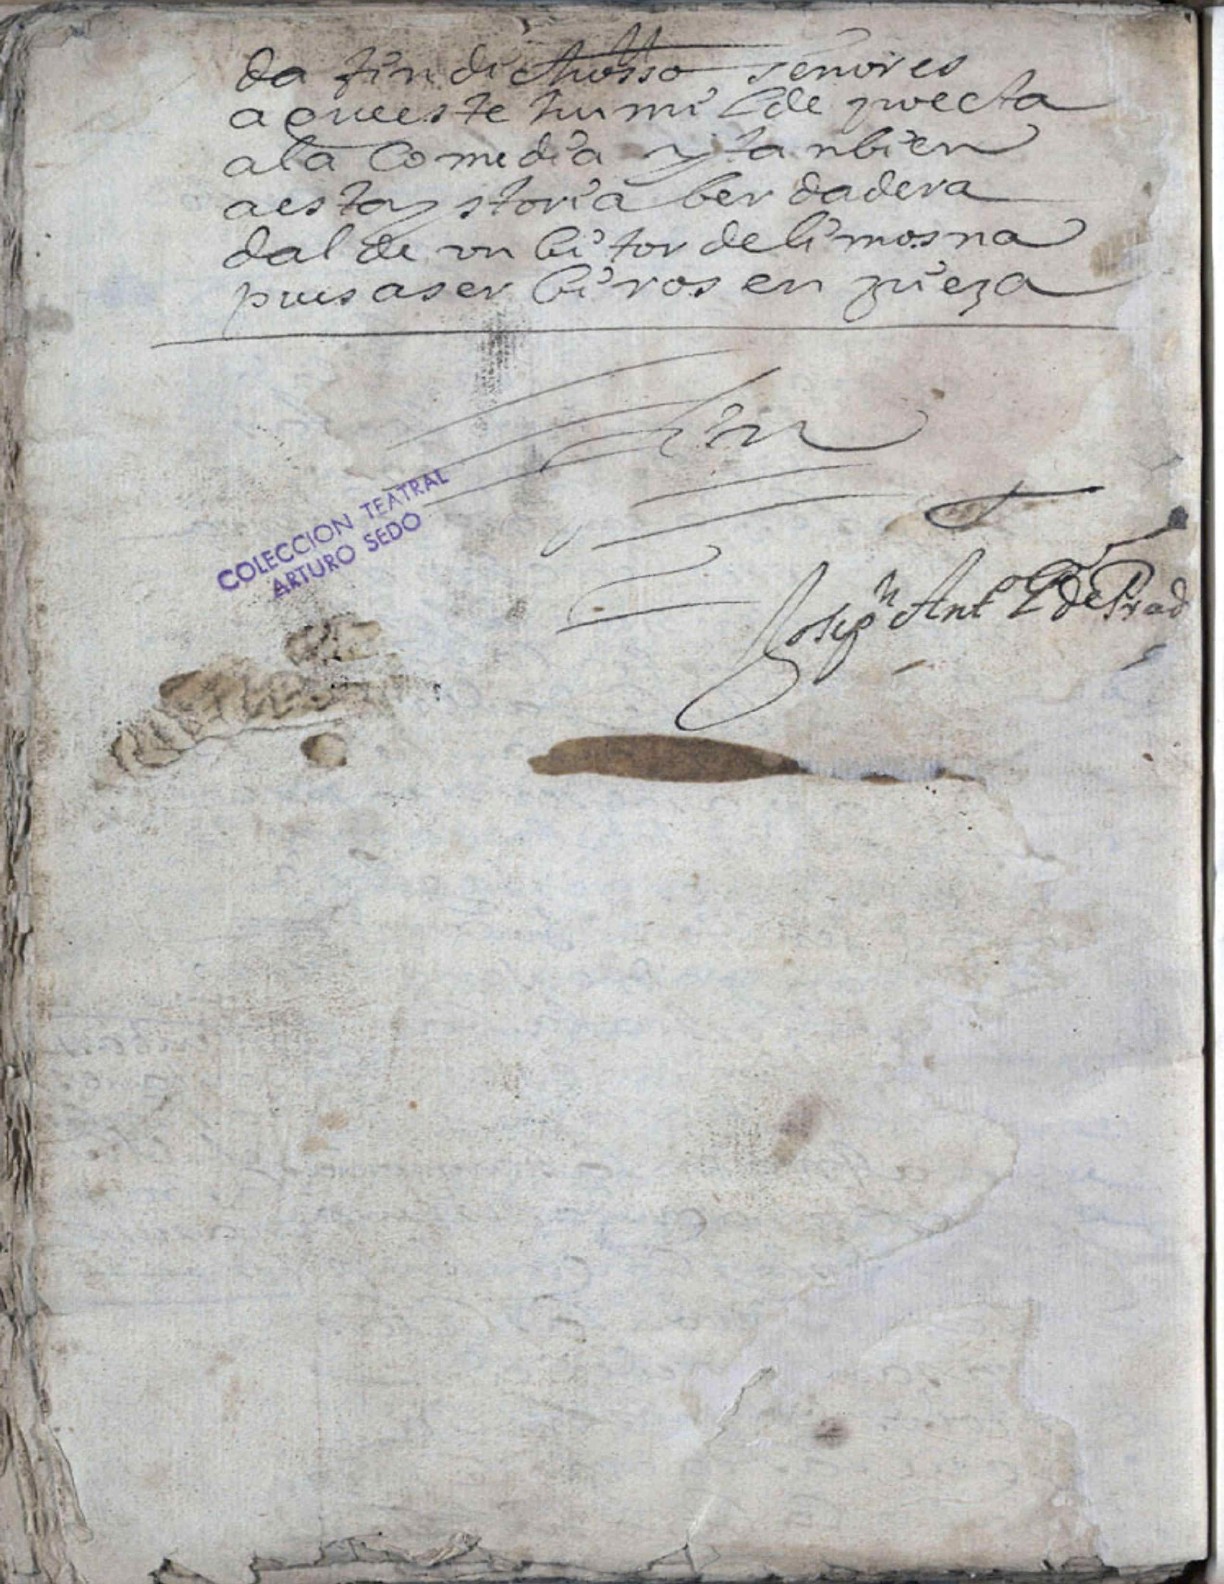 da fin dichosso señores
aqueeste humilde poecta
ala Comedia y tanbien
aestay storia berdadera
dalde vn bitor delimosna
puesaser biros en pieza
Fin
COLECCION TEATRAL
ARTURO SEDO
Joseph Ant de Prad